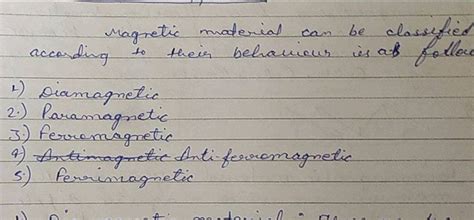 Magnetic material can be classified
according to their behaviour is as follow
1) Diamagnetic
2.) Paramagnetic
3.) Ferromagnetic
4) Antimagnetic Anti-ferromagnetic
5) Ferrimagnetic